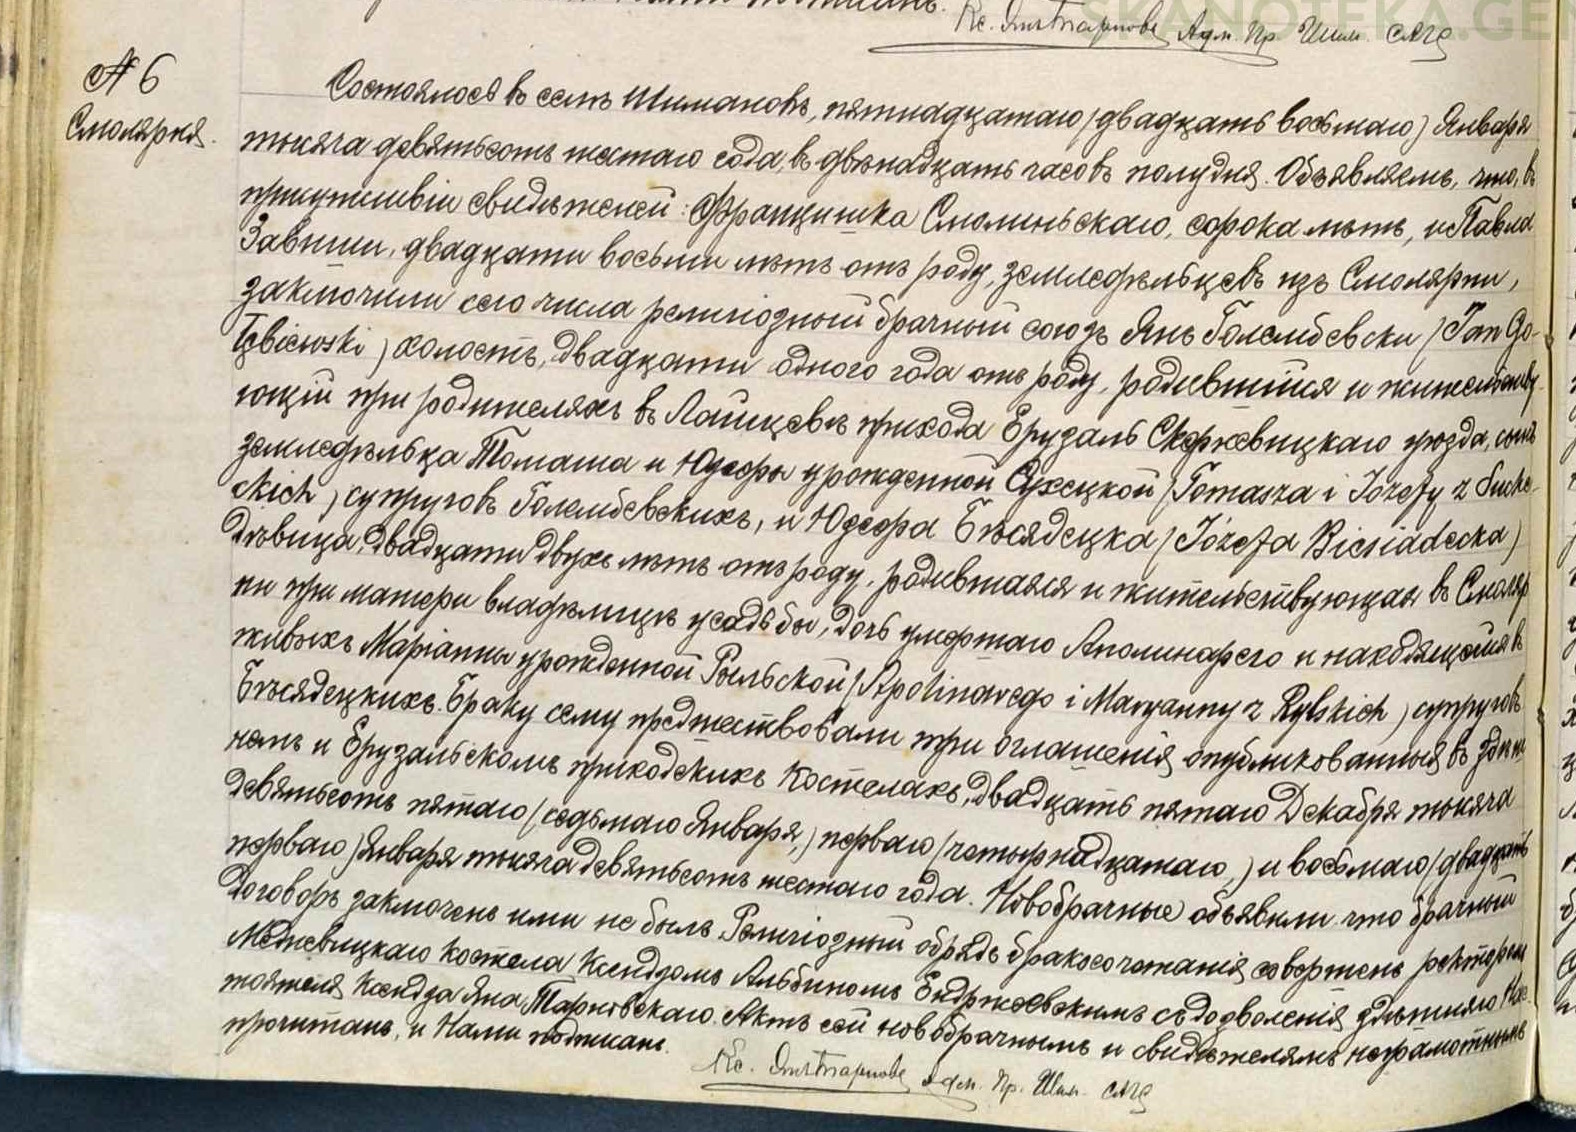 SKANOTEKA.GEN
Кс. Янъ Тарновс Адм. Пр. Шим. САГС
№ 6
Смолярня.
Состоялось въ селѣ Шимановѣ, пятнадцатаго /двадцать восьмаго) Января
тысяча девятьсотъ шестаго года, въ двѣнадцать часовъ полудня. Объявляемъ, что, въ
присутствіи свидѣтелей: Францишка Смолиньскаго, сорока лѣтъ, и Павла
Завиши, двадцати восьми лѣтъ отъ роду, земледѣльцевъ изъ Смолярни,
заключили сего числа религіозный брачный союзъ Янъ Голембевски /Jan Go-
łębiewski) холостъ, двадцати одного года отъ роду, родившійся и жительству-
ющій при родителяхъ въ прихода Ерузаль Скерневицкаго уѣзда, сынъ
земледѣльца Томаша и Юзефы урожденной Сухецкой /Tomasza i Józefy z Suche-
ckich) супруговъ Голембевскихъ, и Юзефа Бѣсядецка /Józefa Biesiadecka)
Дѣвица, двадцати двухъ лѣтъ отъ роду, родившаяся и жительствующая въ Смоляр
ни при матери владѣлицѣ усадьбы, дочь умершаго Аполинарего и находящейся въ
живыхъ Маріанны урожденной Рыльской /Apolinarego i Maryanny z Rylskich) супруговъ
Бѣсядецкихъ. Браку сему предшествовали три оглашенія опубликованныя въ здѣш
немъ и Ерузальскомъ приходскихъ Костелахъ, двадцать пятаго Декабря тысяча
девятьсотъ пятаго /седьмаго Января,) перваго /четырнадцатаго,) и восьмаго /двадцать
перваго) Января тысяча девятьсотъ шестаго года. Новобрачные объявили что брачный
договоръ заключенъ ими не былъ. Религіозный обрядъ бракосочетанія совершенъ ректоромъ
костела Ксендзомъ Альбиномъ Ендржеевскимъ съ дозволенія здѣшняго Нас-
тоятеля Ксендза Яна Тарновскаго. Актъ сей новобрачнымъ и свидѣтелямъ неграмотнымъ
прочитанъ, и Нами подписанъ.
Кс. Янъ Тарновс Адм. Пр. Шим. САГС